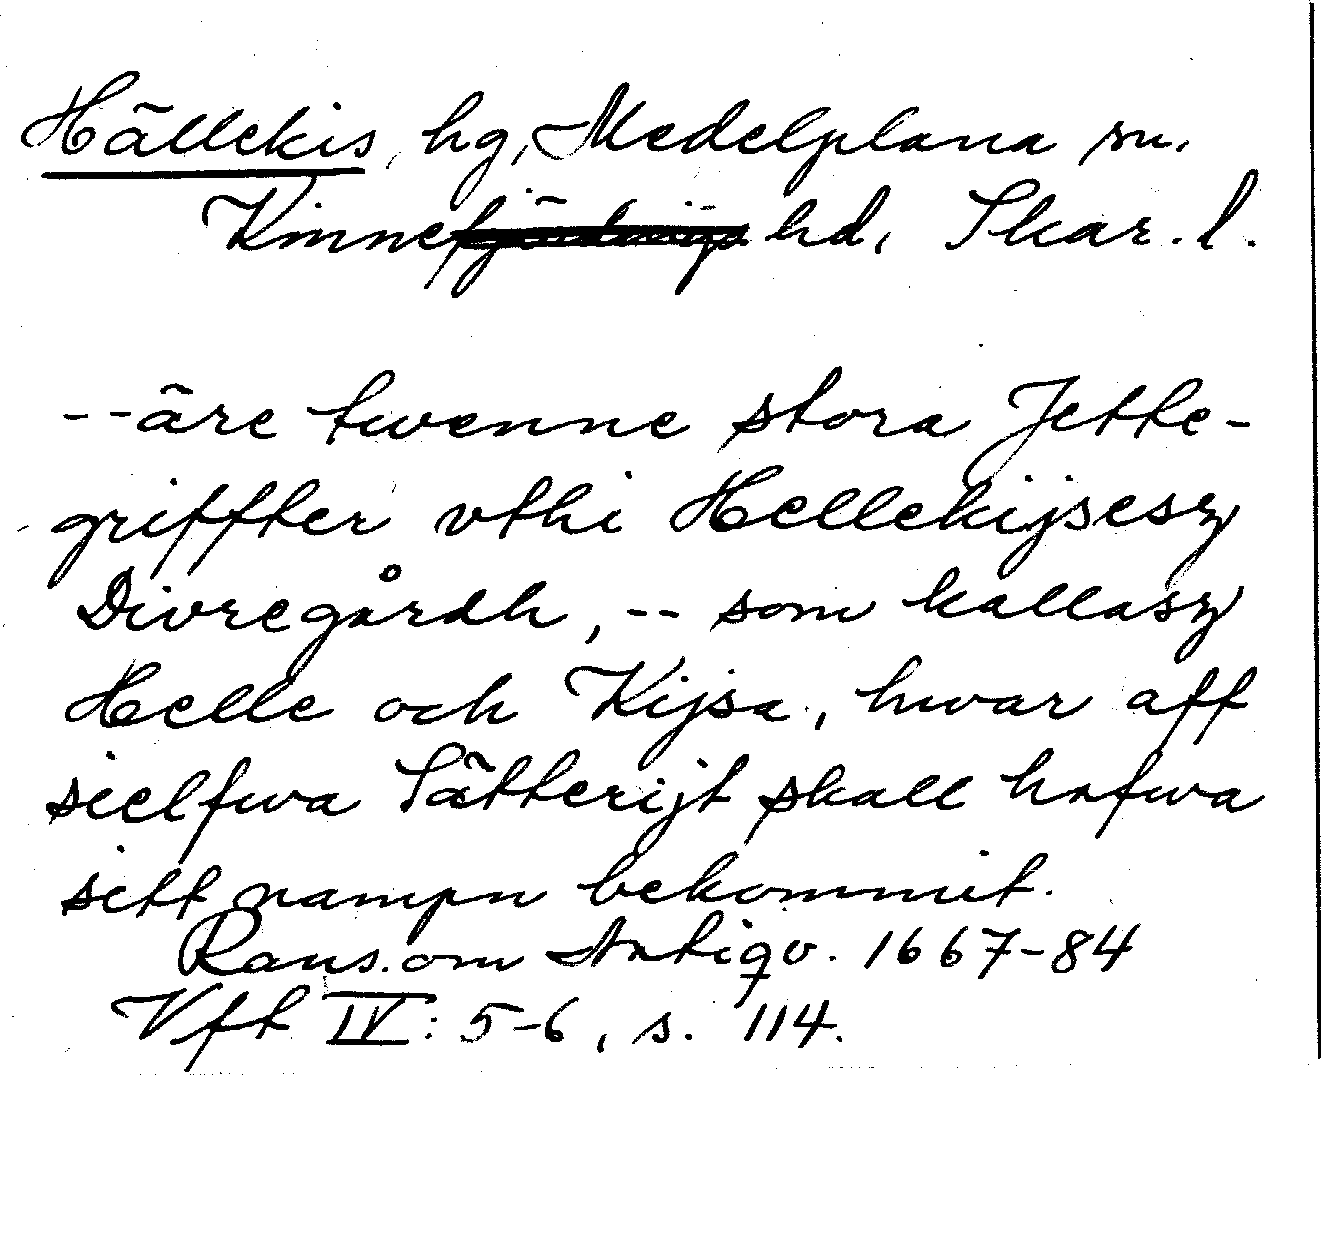 Hällekis, hg, Medelplana sn.
Kinnefjärdings hd, Skar. l.
--äre twenne stora Jette-
griffter vthi Hellekijsesz
Divregårdh, -- som kallasz
Helle och Kijsa, hwar aff
sielfwa Sätterijt skall hafwa
sitt nampn bekommit.
Rans. om Antiqv. 1667-84
Vft IV: 5-6, s. 114.